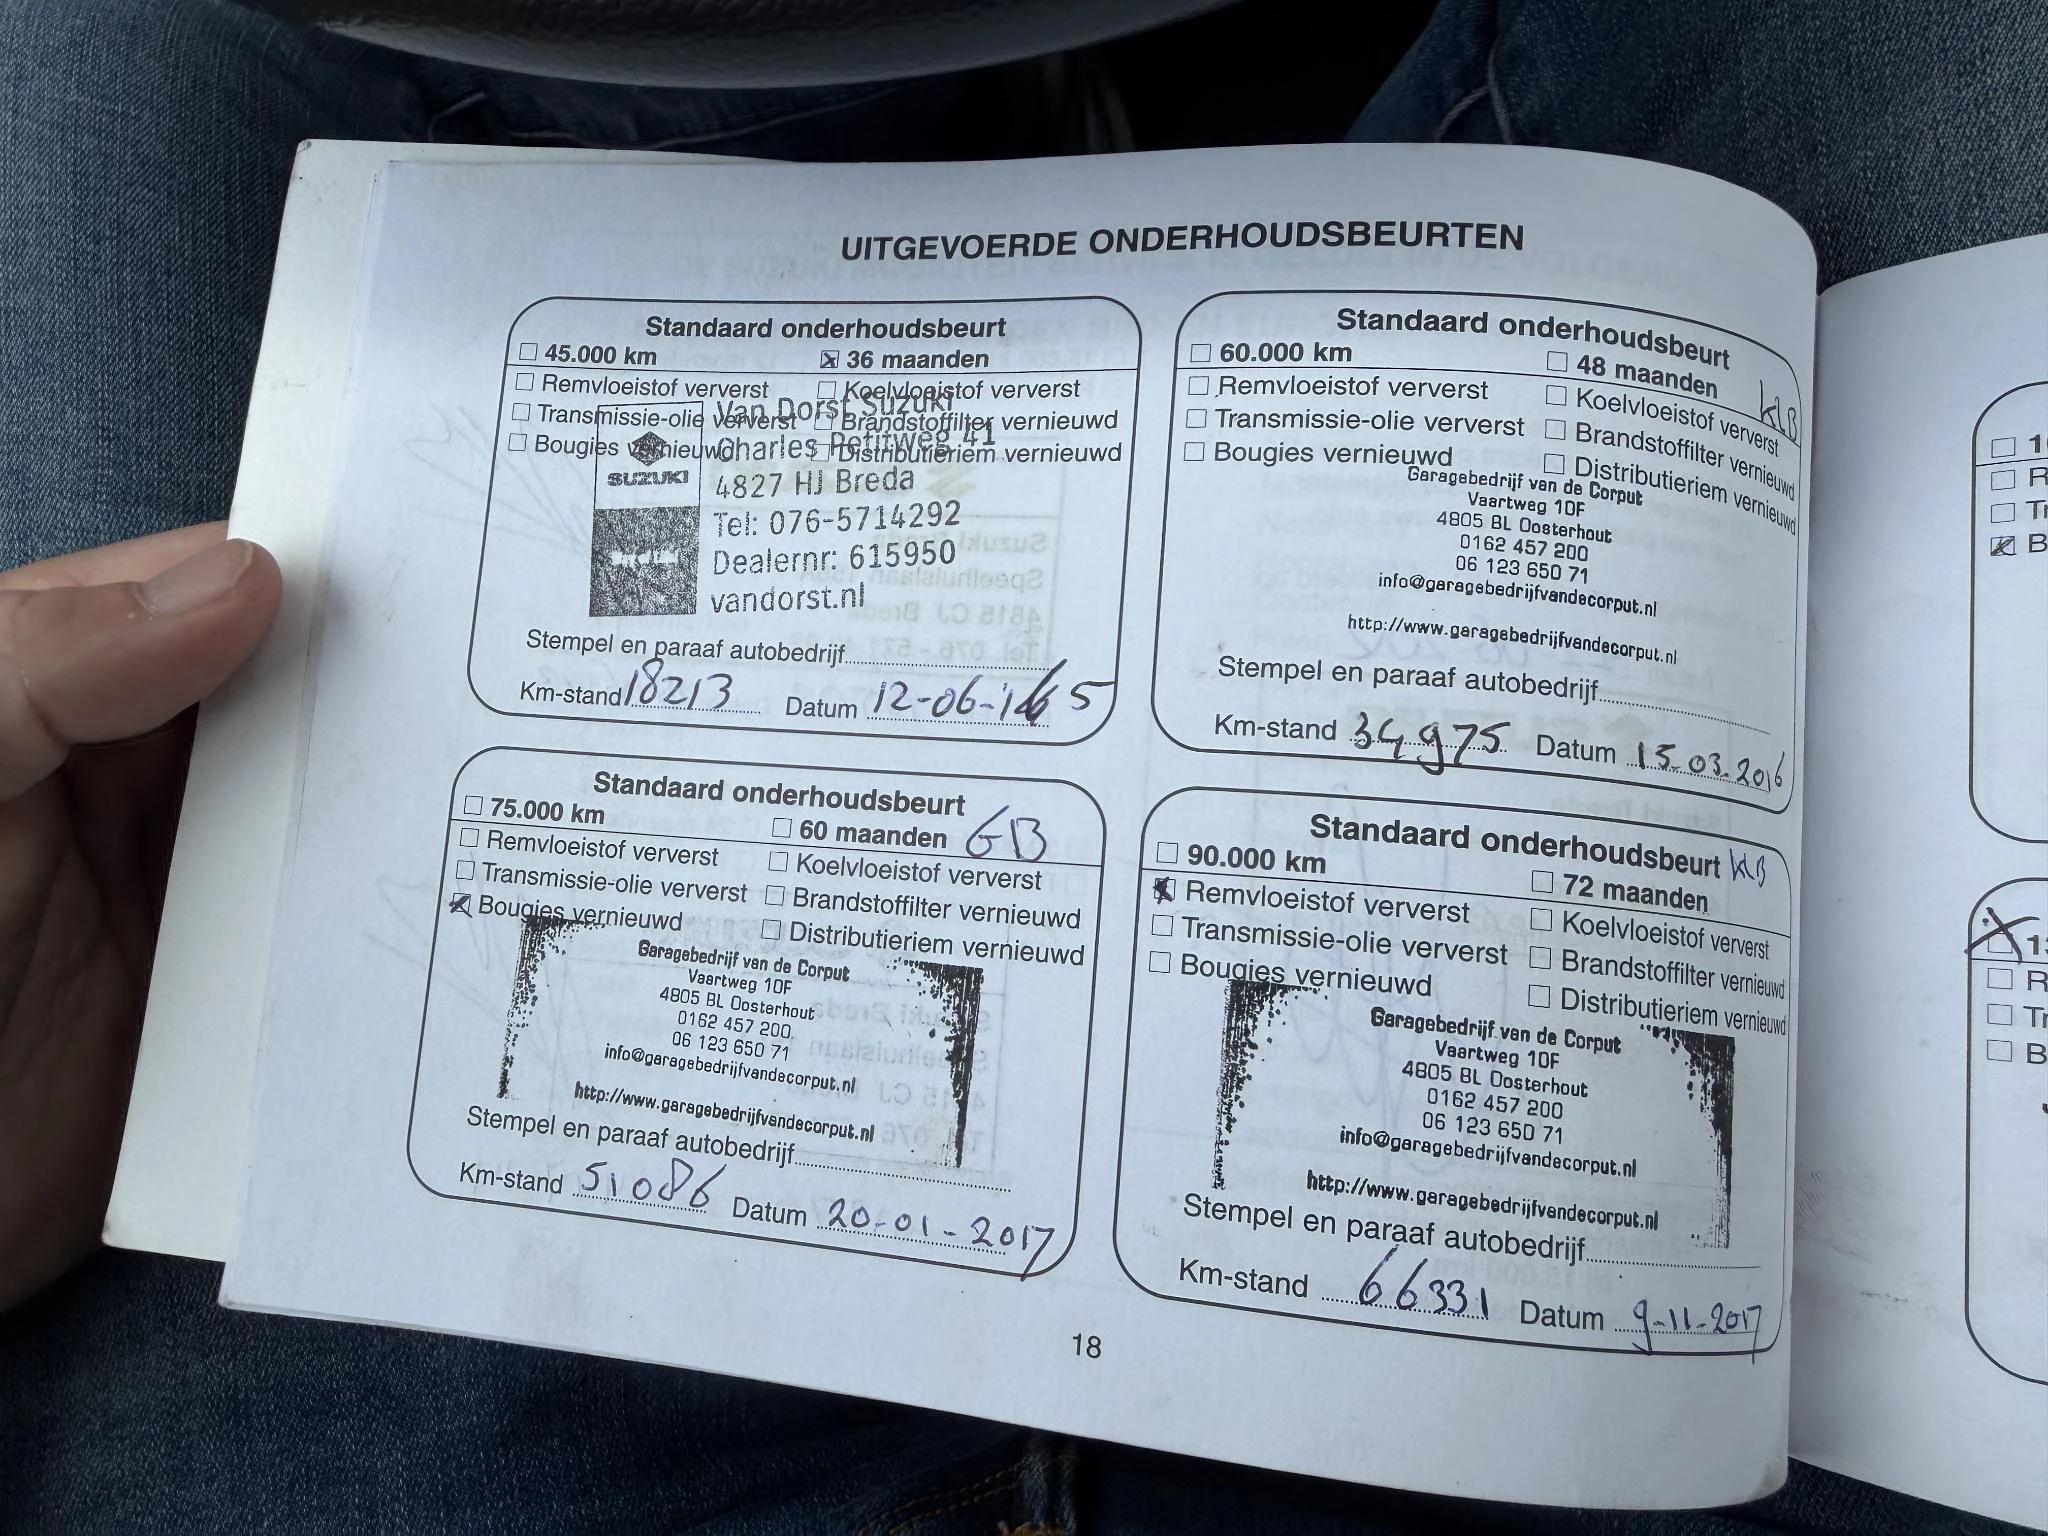 UITGEVOERDE ONDERHOUDSBEURTEN
Standaard onderhoudsbeurt
45.000 km 36 maanden
Remvloeistof ververst Koelvloeistof ververst
Transmissie-olie ververst Brandstoffilter vernieuwd
Bougies vernieuwd Distributieriem vernieuwd
Van Dorst Suzuki
Charles Petitweg 41
SUZUKI 4827 HJ Breda
Tel: 076-5714292
Dealernr: 615950
vandorst.nl
Stempel en paraaf autobedrijf
Km-stand 18213 Datum 12-06-15
Standaard onderhoudsbeurt
60.000 km 48 maanden KLB
Remvloeistof ververst Koelvloeistof ververst
Transmissie-olie ververst Brandstoffilter vernieuwd
Bougies vernieuwd Distributieriem vernieuwd
Garagebedrijf van de Corput
Vaartweg 10F
4805 BL Oosterhout
0162 457 200
06 123 650 71
info@garagebedrijfvandecorput.nl
http://www.garagebedrijfvandecorput.nl
Stempel en paraaf autobedrijf
Km-stand 34975 Datum 15-03-2016
Standaard onderhoudsbeurt
75.000 km 60 maanden GB
Remvloeistof ververst Koelvloeistof ververst
Transmissie-olie ververst Brandstoffilter vernieuwd
Bougies vernieuwd Distributieriem vernieuwd
Garagebedrijf van de Corput
Vaartweg 10F
4805 BL Oosterhout
0162 457 200
06 123 650 71
info@garagebedrijfvandecorput.nl
http://www.garagebedrijfvandecorput.nl
Stempel en paraaf autobedrijf
Km-stand 51086 Datum 20-01-2017
Standaard onderhoudsbeurt KLB
90.000 km 72 maanden
Remvloeistof ververst Koelvloeistof ververst
Transmissie-olie ververst Brandstoffilter vernieuwd
Bougies vernieuwd Distributieriem vernieuwd
Garagebedrijf van de Corput
Vaartweg 10F
4805 BL Oosterhout
0162 457 200
06 123 650 71
info@garagebedrijfvandecorput.nl
http://www.garagebedrijfvandecorput.nl
Stempel en paraaf autobedrijf
Km-stand 66331 Datum 9-11-2017
18